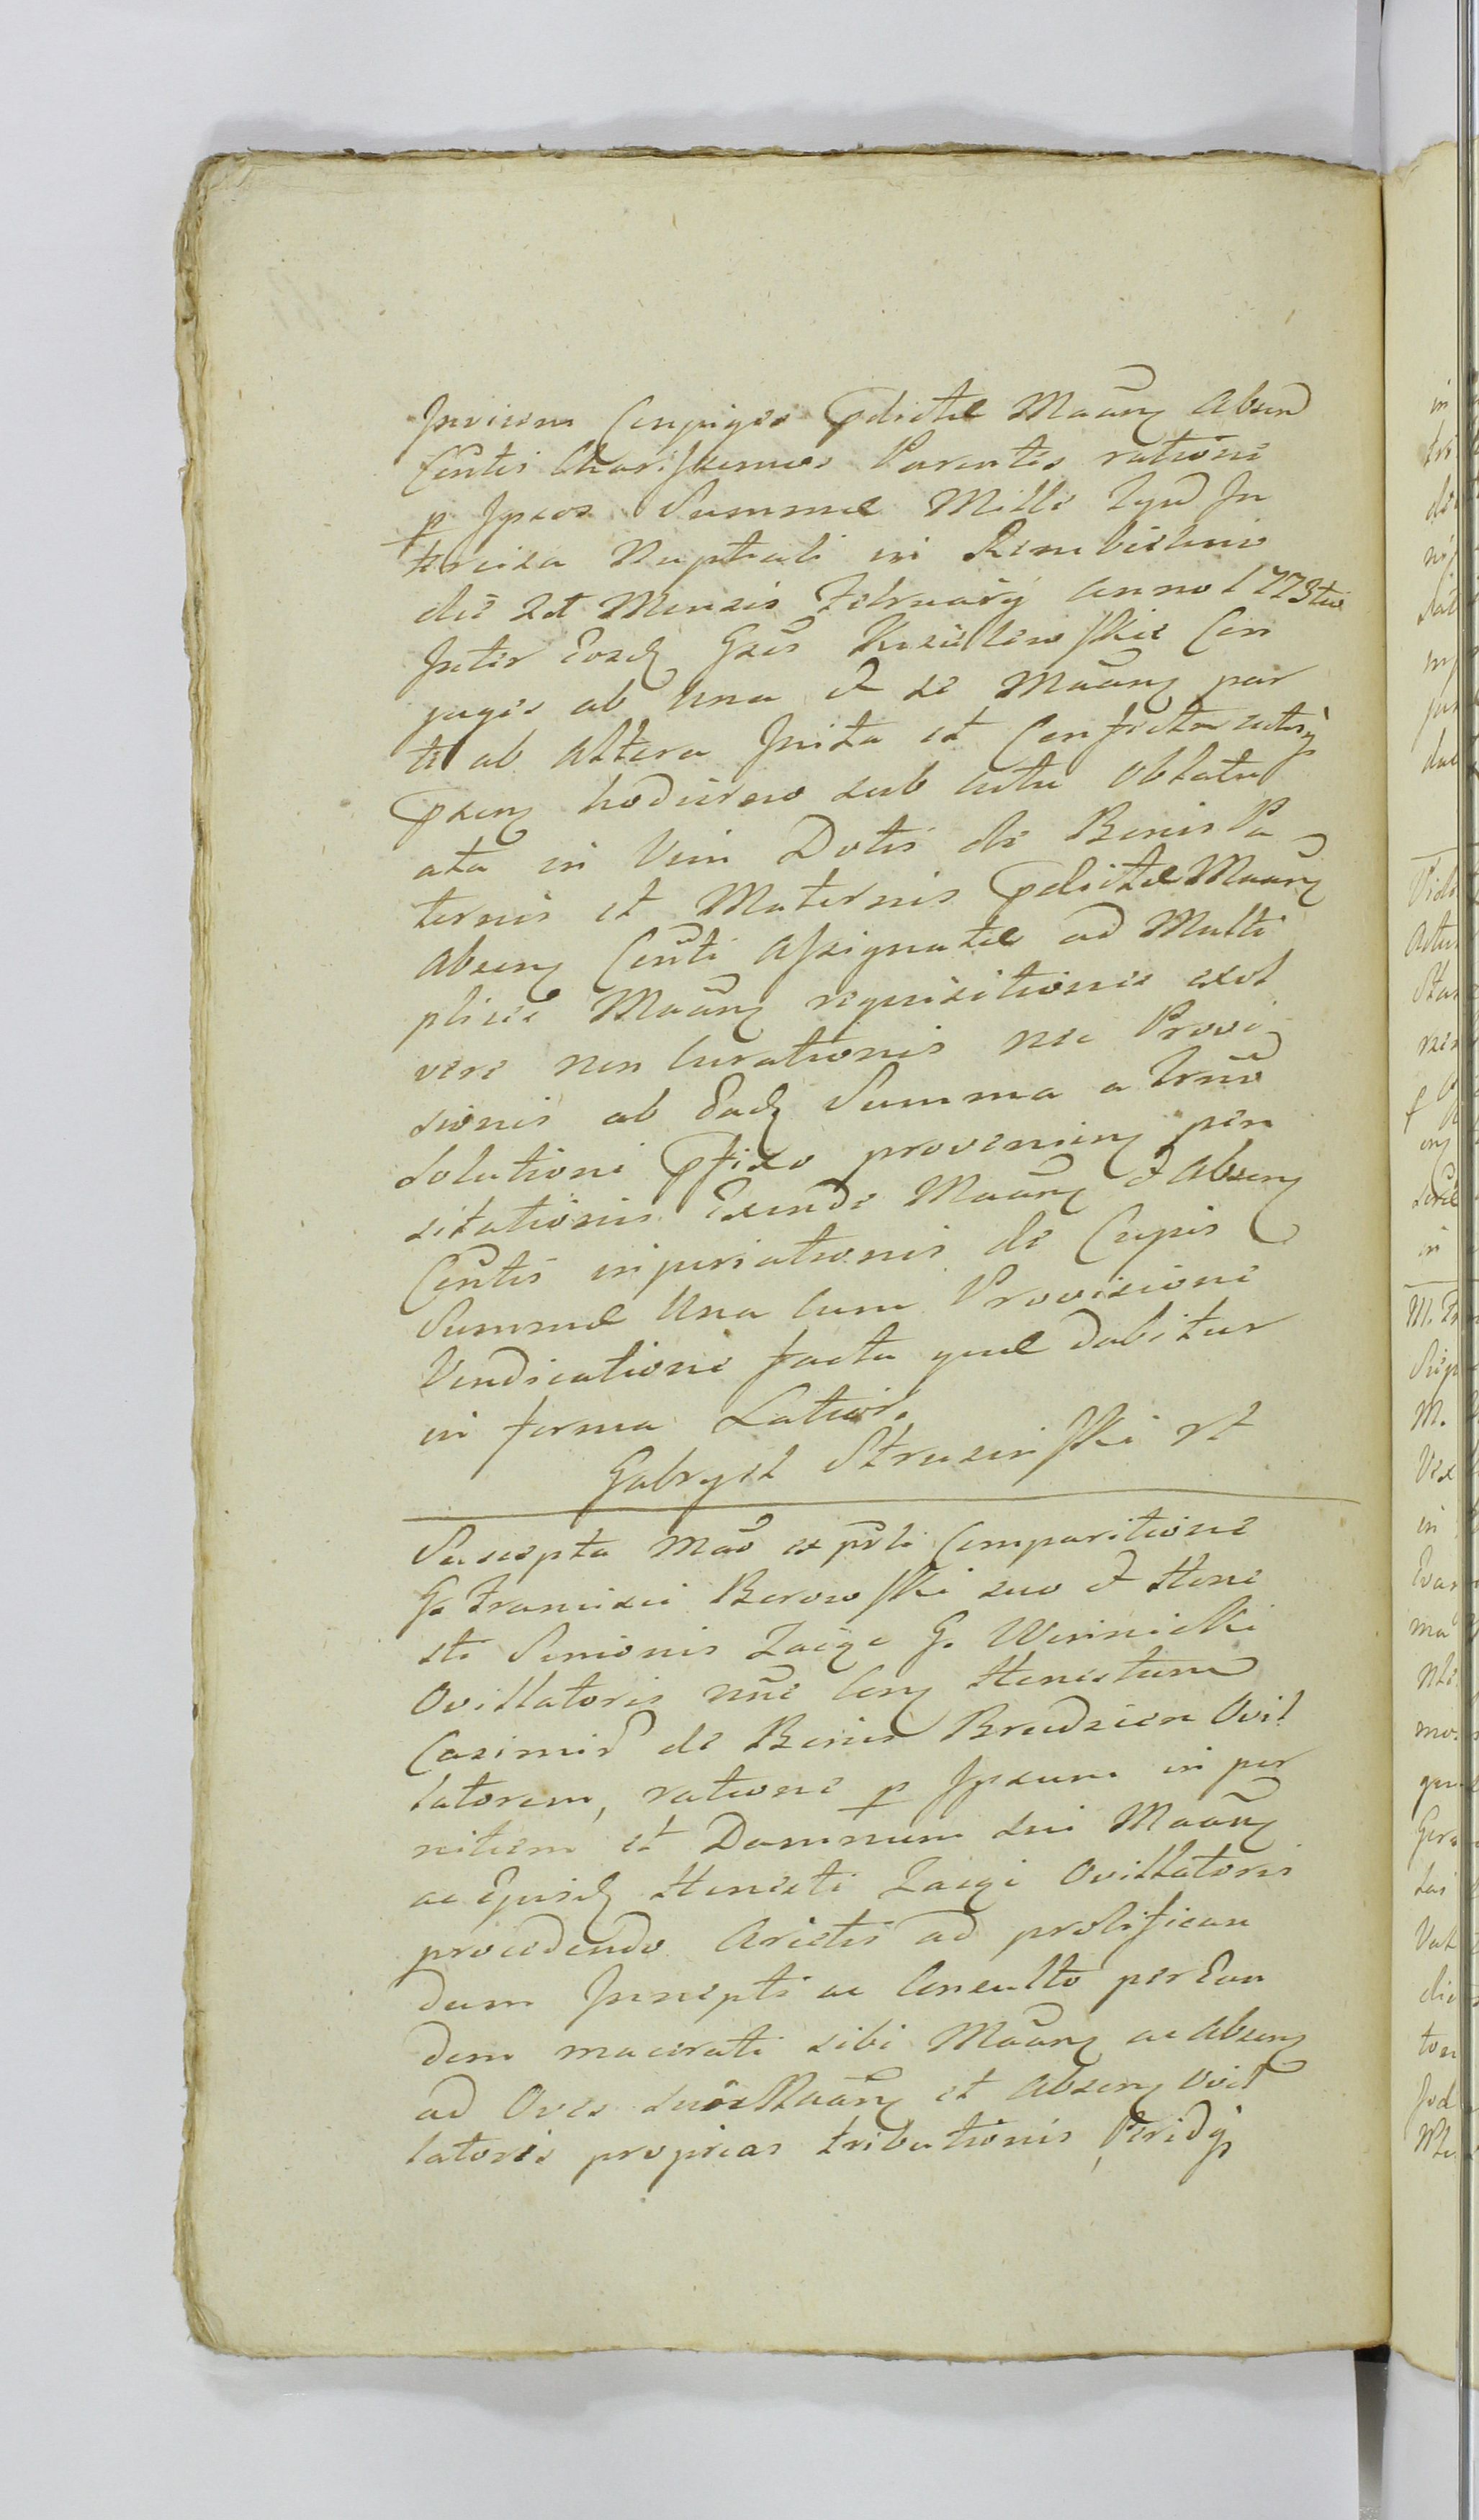 Invicem Conjuges pdictae Maanz Absen
Centis Charissimos Parentes ratione
p Ipsos Summae Mille Tynf In
tercisa Nuptiali in Rembielino
die 2d Mensis February anno 1773tio
Inter Eosdz Gsos Kisielewskie Con
juges ab una et se Maanz par
te ab altera Inita et Confecta actisq
psenz hodierno sub actu Oblata
ata in Vim Dotis de Bonis Pa
ternis et Maternis pdictae Maanz
absenz Centi Assignatae ad Multi
plices Maanz requisitiones exol
vere non Curationis nec Provi
sionis ab Eadz Summa a Trno
Solutioni pfixo provenienz pen
sitationis Exinde Maanz et Absenz
Centis injuriationis de Cujus
Summae Una cum Provisione
Vindicatione facta quae dabitur
in forma Latiori.
Gabryel Strusinski rt
Suscepta Mao ex psli Comparitione
G. Francisci Borowski suo et Hone
sti Simonis Zaige G. Winnicki
Ovillatoris nne Conz Honestum
Casimir de Bonis Brudzien Ovil
latorem, ratione p Ipsum in per
nitiem et Damnum sui Maanz
ac Ejusdz Honesti Zaige Ovillatoris
procedendo Arietis ad prolifican
dum Inepti ac Consulto per Eun
dem macerati sibi Maanz ac absenz
ad Oves suas Maanz et absenz Ovil
latoris proprias tributionis, Peridq